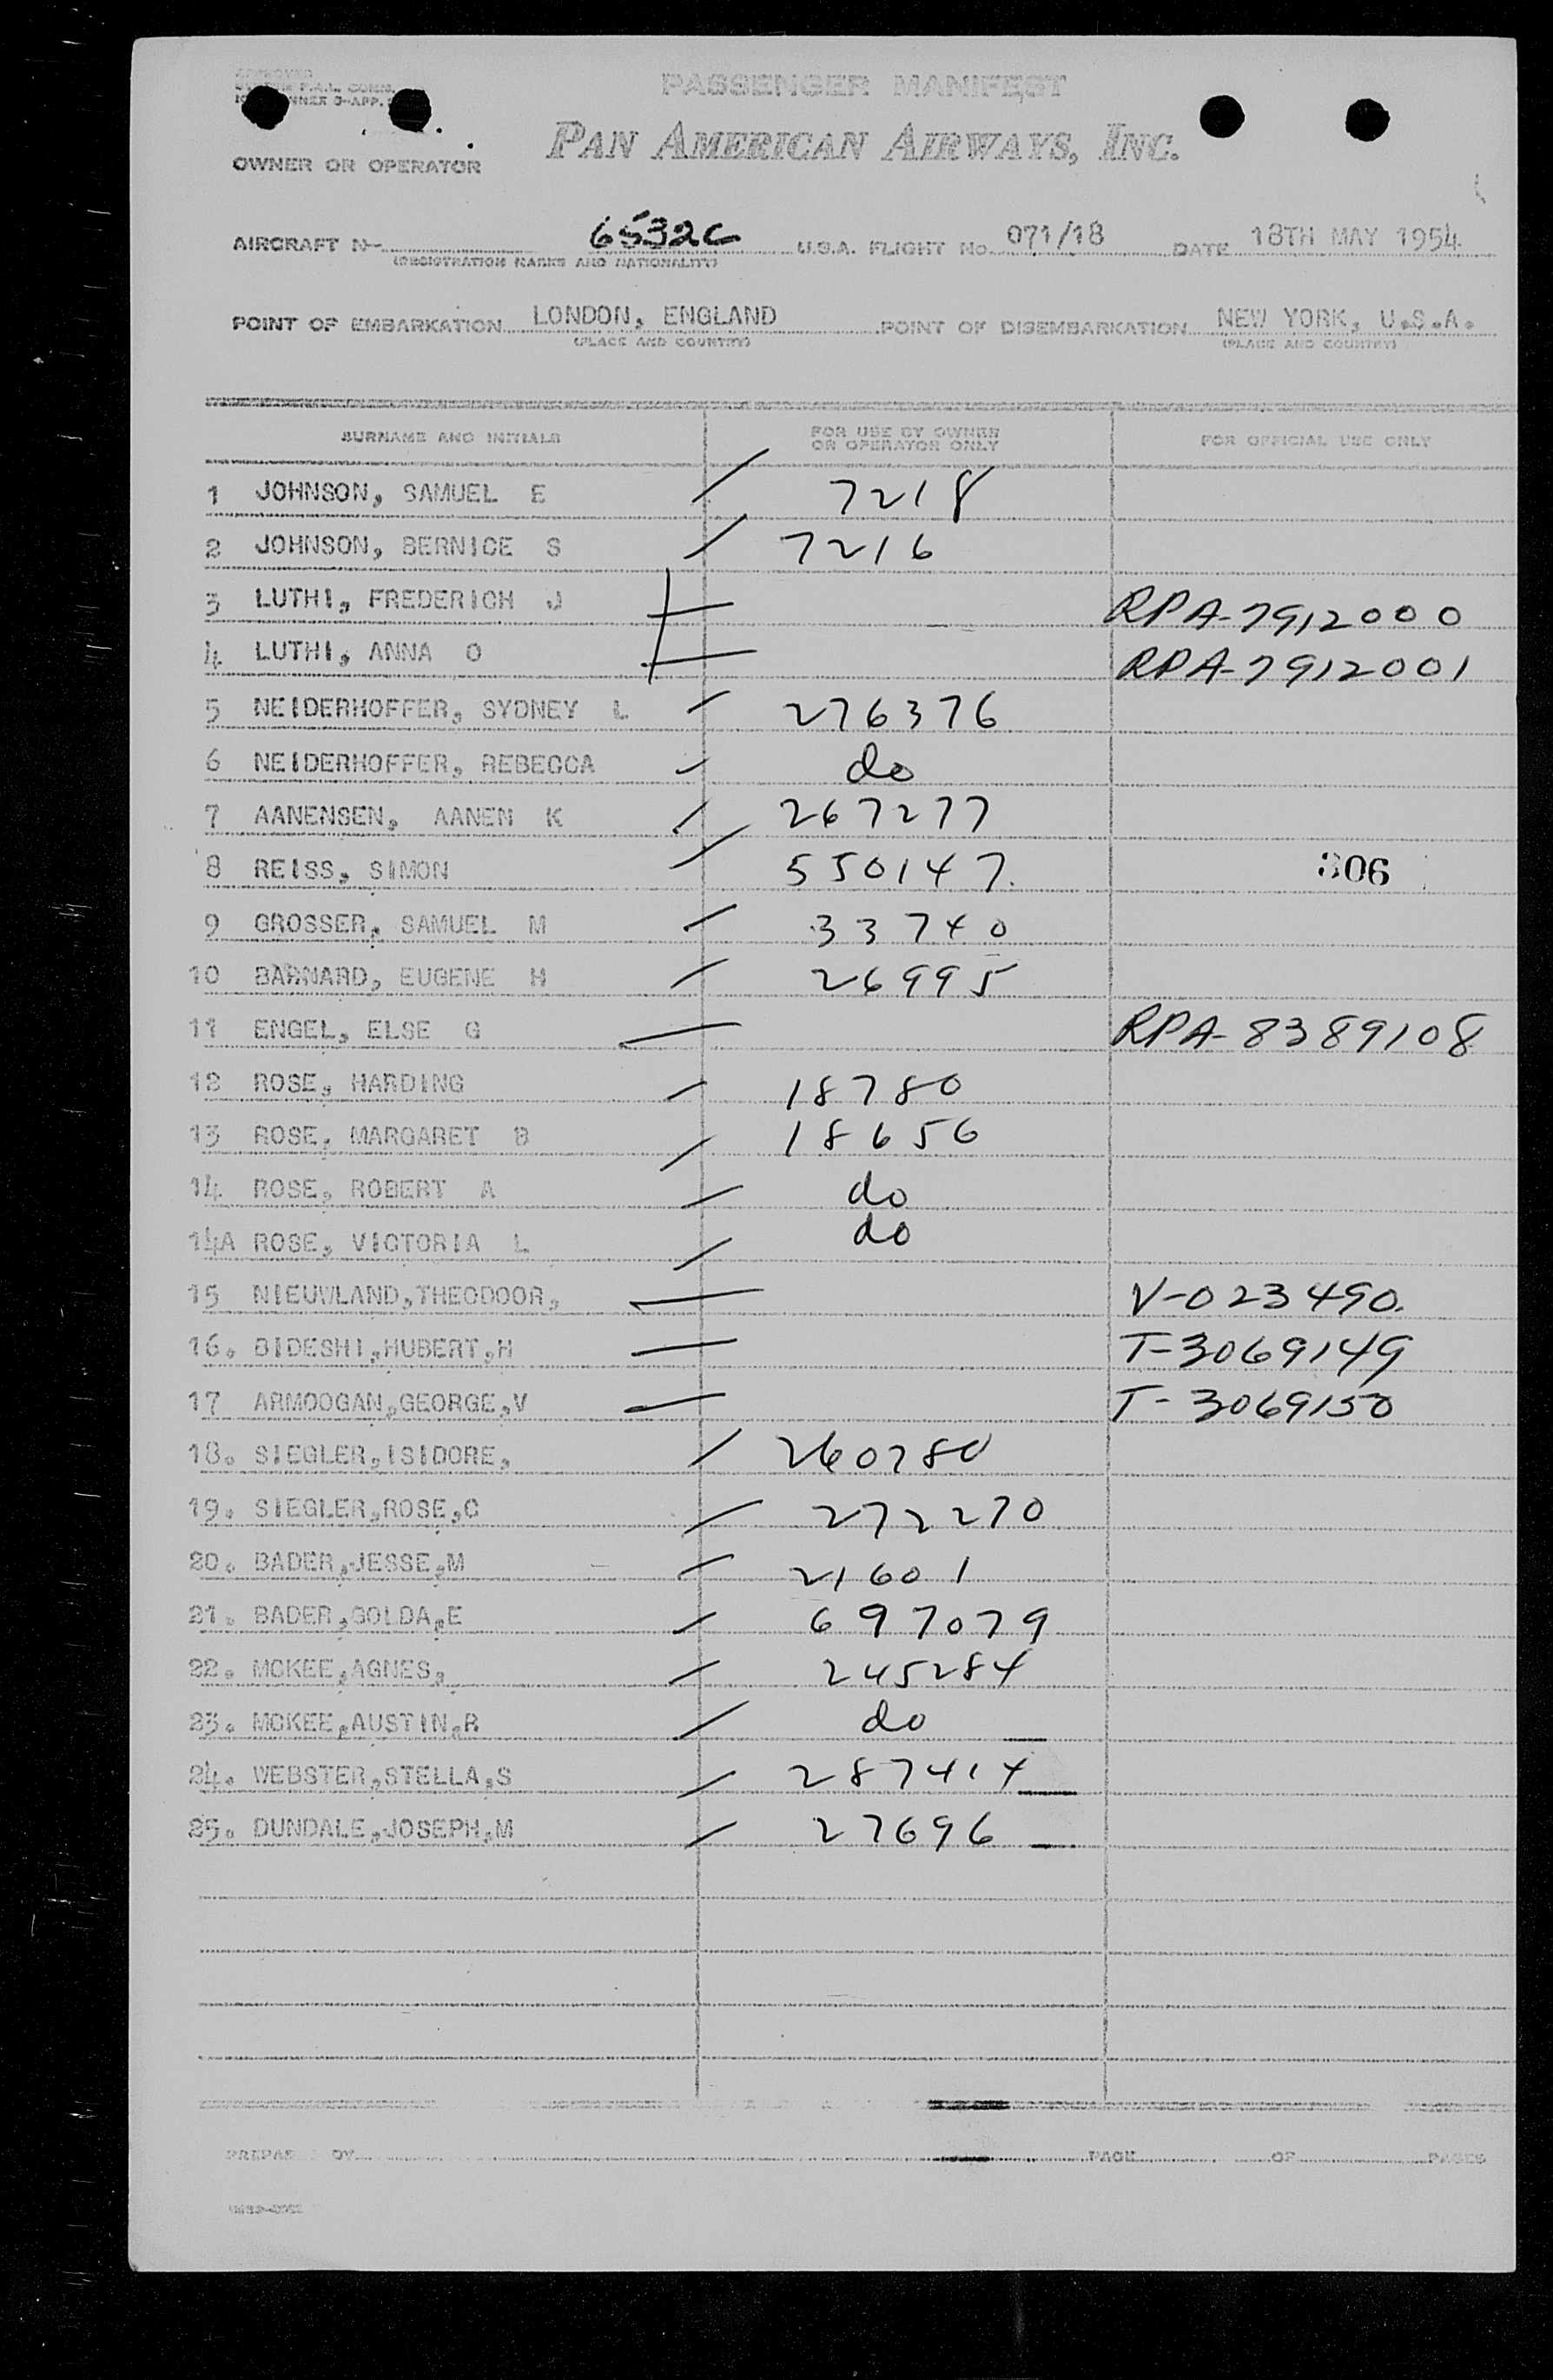 APPROVED
PASSENGER MANIFEST
PAN AMERICAN AIRWAYS, INC.
OWNER OR OPERATOR
AIRCRAFT N- 6532C U.S.A. FLIGHT No. 071/18 DATE 18TH MAY 1954
(REGISTRATION MARKS AND NATIONALITY)
POINT OF EMBARKATION LONDON, ENGLAND POINT OF DISEMBARKATION NEW YORK, U.S.A.
(PLACE AND COUNTRY) (PLACE AND COUNTRY)
SURNAME AND INITIALS FOR USE BY OWNER OR OPERATOR ONLY FOR OFFICIAL USE ONLY
1 JOHNSON, SAMUEL E 7218
2 JOHNSON, BERNICE S 7216
3 LUTHI, FREDERICH J RPA-7912000
4 LUTHI, ANNA O RPA-7912001
5 NEIDERHOFFER, SYDNEY L 276376
6 NEIDERHOFFER, REBECCA do
7 AANENSEN, AANEN K 267277
8 REISS, SIMON 550147. 306
9 GROSSER, SAMUEL M 33740
10 BARNARD, EUGENE H 26995
11 ENGEL, ELSE G RPA-8389108
12 ROSE, HARDING 18780
13 ROSE, MARGARET B 18656
14 ROSE, ROBERT A do
14A ROSE, VICTORIA L do
15 NIEUWLAND,THEODOOR, V-023490.
16. BIDESHI,HUBERT,H T-3069149
17 ARMOOGAN,GEORGE,V T-3069150
18. SIEGLER,ISIDORE, 260780
19. SIEGLER,ROSE,C 272270
20. BADER,JESSE,M 21601
21. BADER,GOLDA,E 697079
22. MCKEE,AGNES, 245284
23. MCKEE,AUSTIN,R do
24. WEBSTER,STELLA,S 287414
25. DUNDALE,JOSEPH,M 27696
PAGE OF PAGES